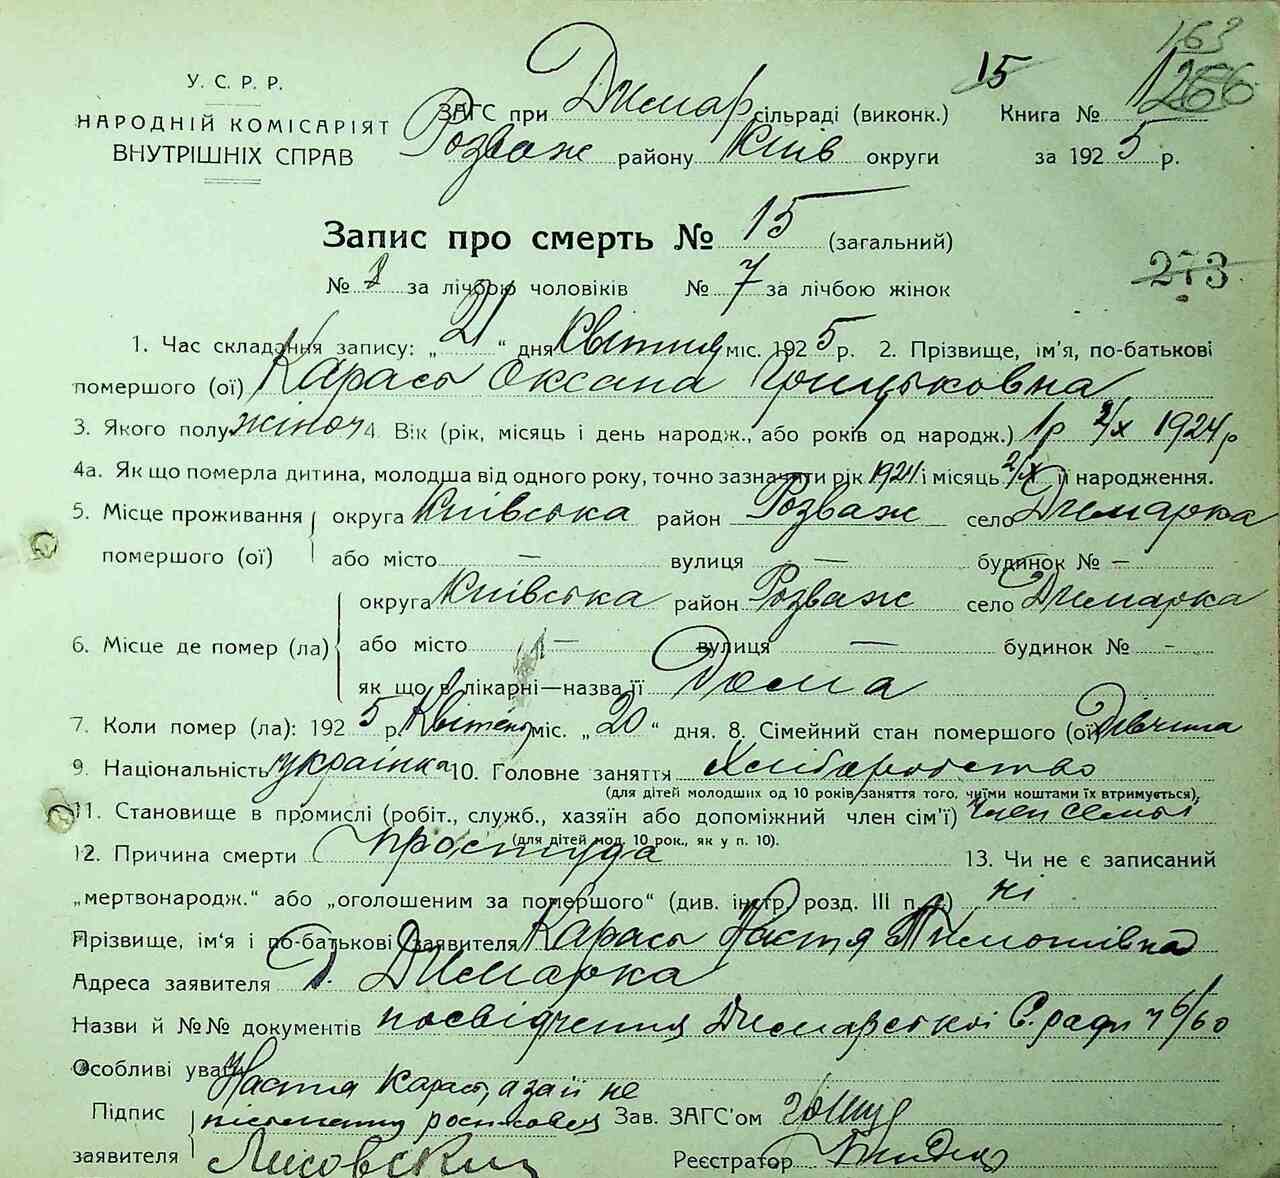 163
15 266
У. С. Р. Р.
НАРОДНІЙ КОМІСАРІЯТ
ВНУТРІШНІХ СПРАВ
ЗАГС при Димар сільраді (виконк.) Книга №
Розваж району Київ округи за 1925 р.
Запис про смерть № 15 (загальний)
273
№ за лічбою чоловіків № 7 за лічбою жінок
1. Час складання запису: „21“ дня Квітня міс. 1925 р. 2. Прізвище, ім’я, по-батькові
помершого (ої) Карась Оксана Грицьковна
3. Якого полу жіноч 4. Вік (рік, місяць і день народж., або років од народж.) 1р 2/х 1924р
4а. Як що померла дитина, молодша від одного року, точно зазначити рік 1924 і місяць 2/х її народження.
5. Місце проживання округа Київська район Розваж село Димарка
помершого (ої) або місто — вулиця — будинок № —
округа Київська район Розваж село Димарка
6. Місце де помер (ла) або місто — вулиця — будинок № -
як що в лікарні—назва її Дома
7. Коли помер (ла): 1925 р Квітень міс. „20“ дня. 8. Сімейний стан помершого (ої) Дівчина
9. Національність українка 10. Головне заняття Хліборобство
(для дітей молодших од 10 років заняття того, чиїми коштами їх втримується),
11. Становище в промислі (робіт., служб., хазяїн або допоміжний член сім’ї) член семьї
(для дітей мол. 10 рок., як у п. 10).
12. Причина смерти простуда 13. Чи не є записаний
„мертвонародж.“ або „оголошеним за помершого“ (див. інстр. розд. III п. ) ні
Прізвище, ім’я і по-батькові заявителя Карась Настя Тимошівна
Адреса заявителя с. Димарка
Назви й №№ документів посвідчення Димарської С. ради ч 6/60
Особливі уваги Настя Карась, а за її не
Підпис письменну росписався Зав. ЗАГС’ом
заявителя Лисовский Реєстратор